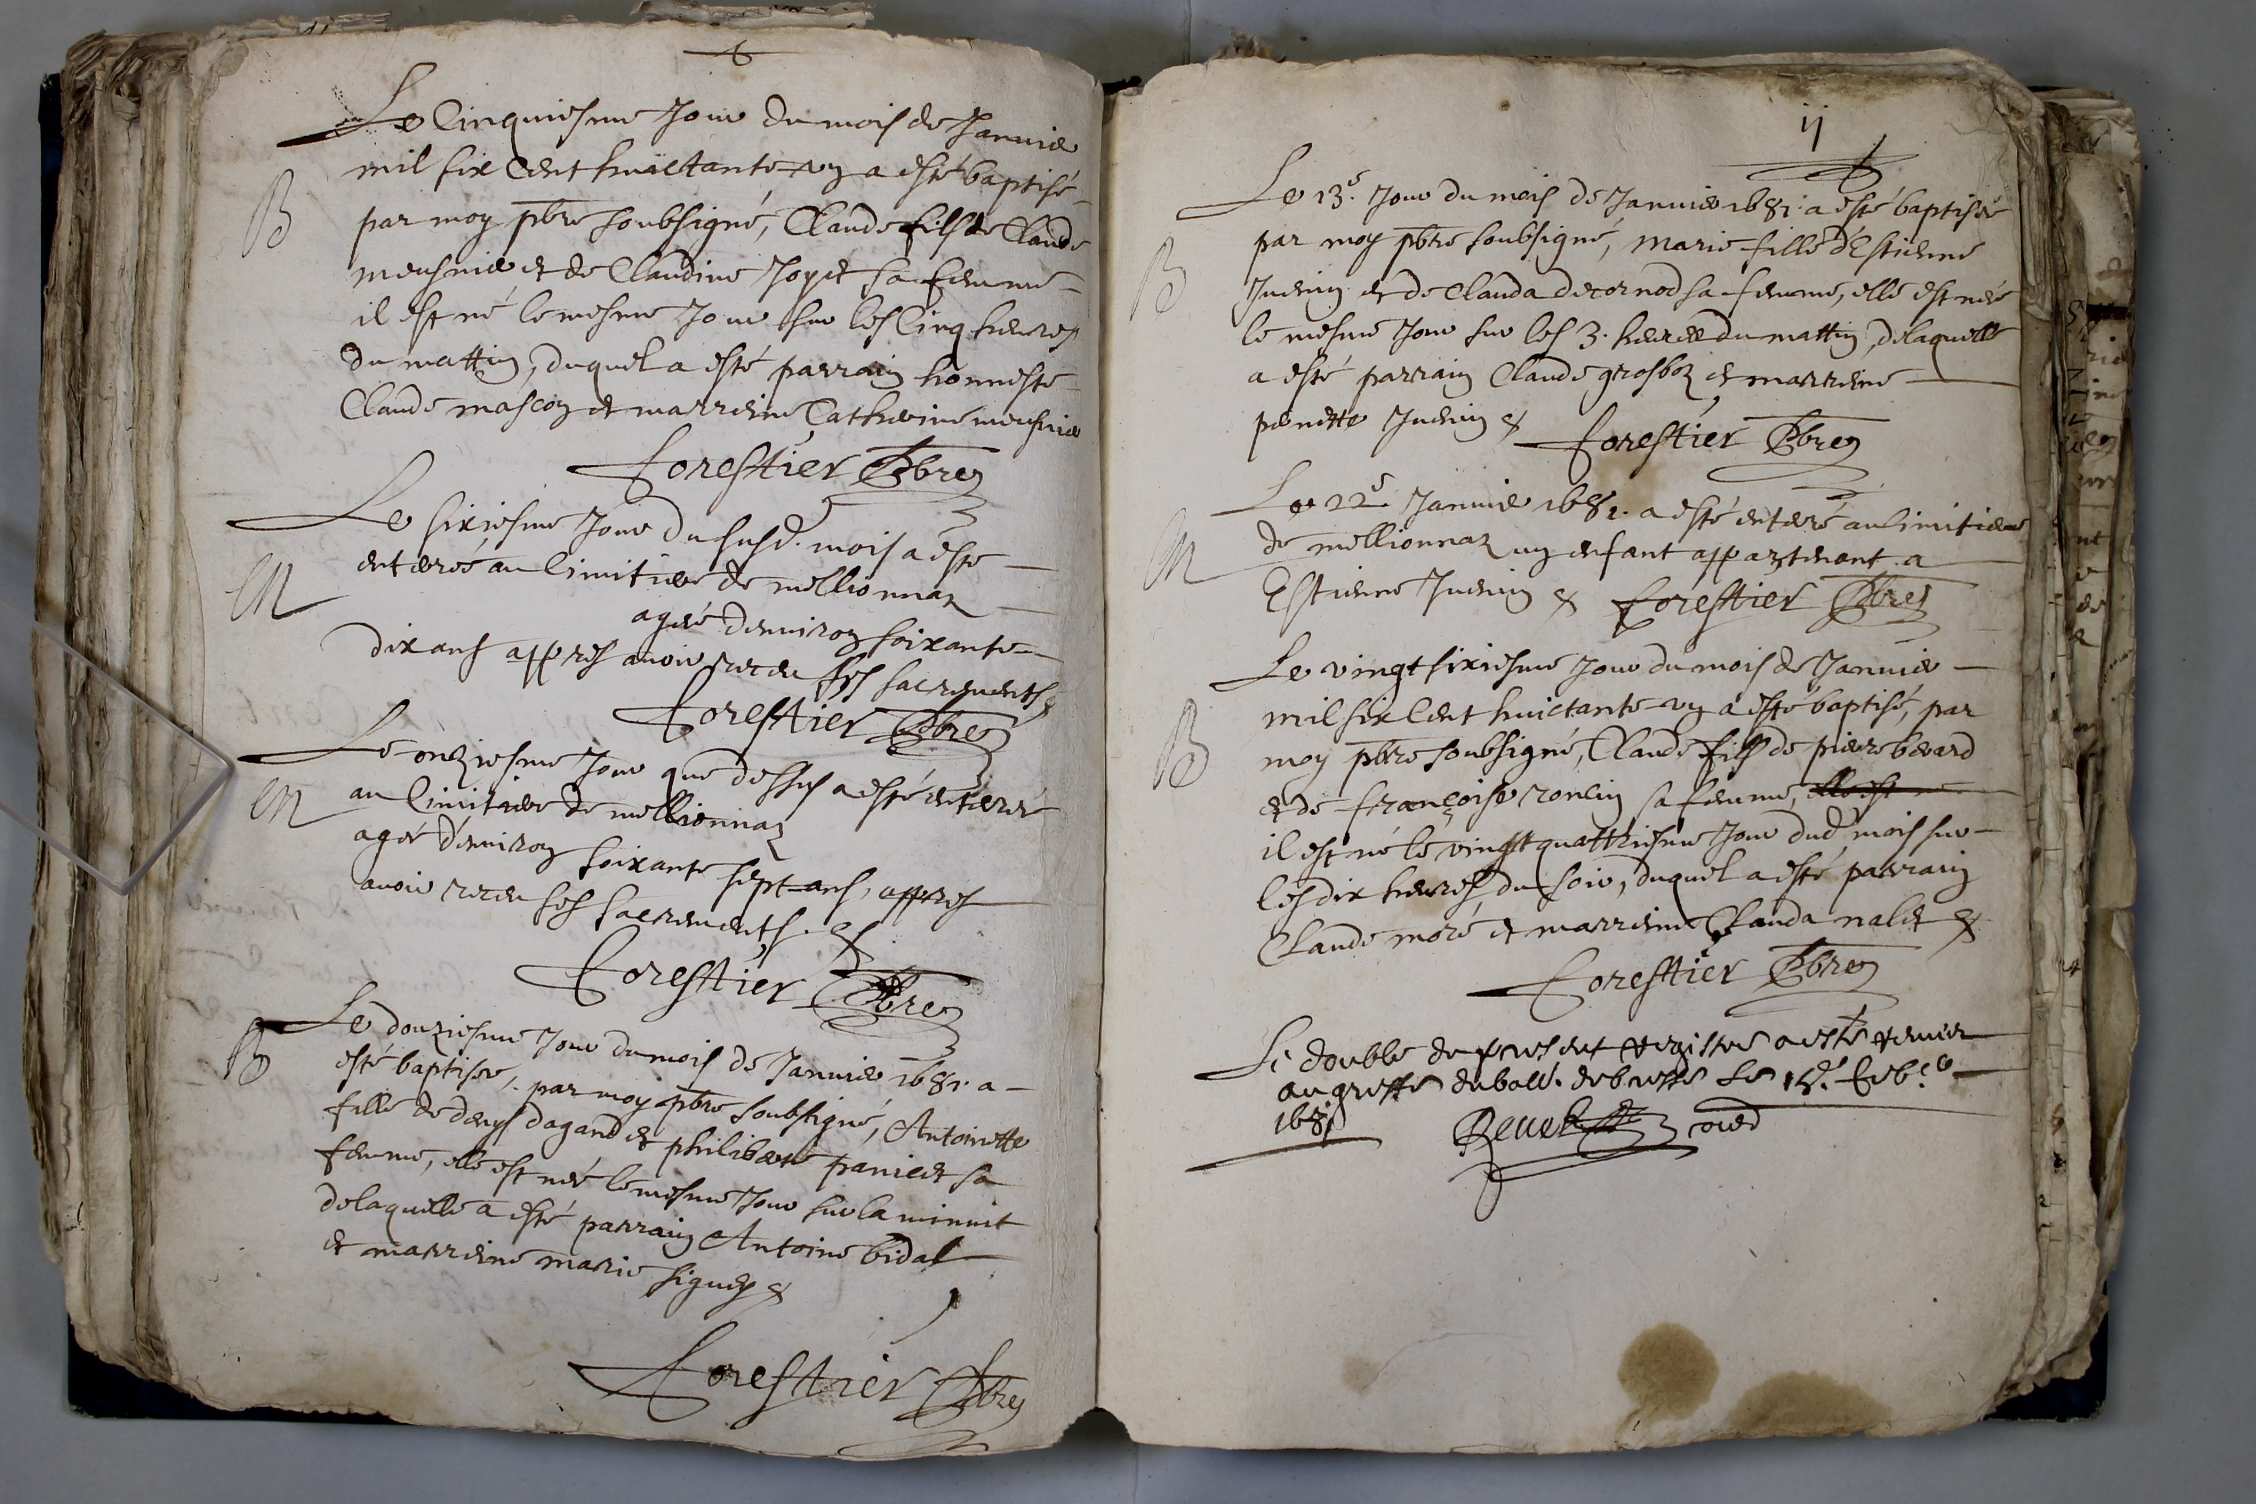 Le Cinquiesme Jour du mois de Janvier
mil six Cent huictante un a esté baptisé
B
par moy pbre soubsigné, Claude fils de Claude
meusnier et de Claudine Joyet sa femme
il est né le mesme Jour sur les Cinq heures
du mattin, duquel a esté parrain honneste
Claude mascon et marreine Catherine meusnier
Forestier Pbre
Le sixiesme Jour du susd. mois a esté
M
enterrés au Cimitiere de mellionnaz
ageé d'environ soixante
dix ans appres avoir receu ses sacrements
Forestier Pbre
Le onziesme Jour que dessus a esté enterré
M
au Cimitiere de mellionnaz
agé d'environ soixante sept ans, appres
avoir receu ses sacrements. &
Forestier Pbre
Le douziesme Jour du mois de Janvier 1681. a
B
esté baptisée, par moy pbre soubsigné, Antoinette
fille de denys dagand et philiberte paniset sa
femme, elle est née le mesme Jour sur la minuit
delaquelle a esté parrain Antoine bidal
et marreine marie &
Forestier Pbre
ij
Le 13e. Jour du mois de Janvier 1681. a esté baptisée
par moy pbre soubsigné, marie fille d'Estienne
B
Juenin et de Clauda decornod sa femme, elle est née
le mesme Jour sur les 3. heures du mattin, delaquelle
a esté parrain Claude grosboz et marreine
pernette Juenin &
Forestier Pbre
Le 22e Janvier 1681. a esté enterré au Cimitiere
M
de mellionnaz un enfant appartenant a
Estienne Juenin & Forestier Pbre
Le vingt sixiesme Jour du mois de Janvier
mil six Cent huictante un a esté baptisé, par
B
moy pbre soubsigné, Claude fils de pierre berard
et de françoise roncin sa femme, elle est ne
il est né le vingt quattriesme Jour dud mois sur
les dix heures, du soir, duquel a esté parrain
Claude moré et marreine Clauda nalet &
Forestier Pbre
Le double du present registre a esté remier
au greffe du ball. de bresse Le 15e. feb.
1681